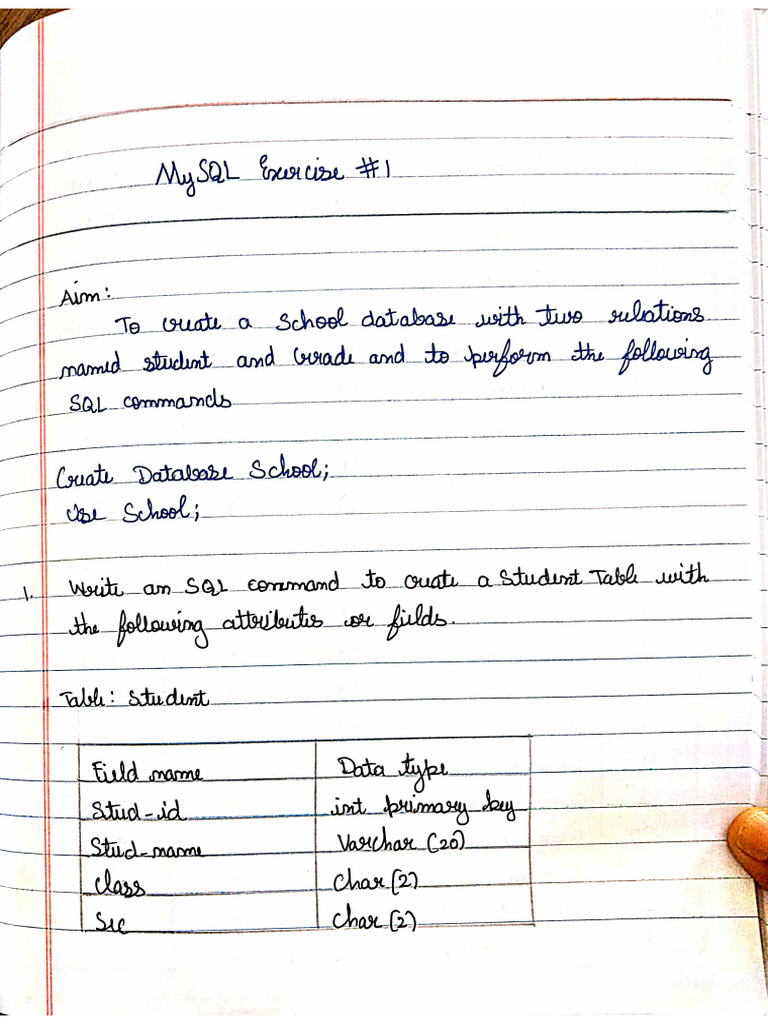 MySQL Exercise #1
Aim:
To create a School database with two relations
named student and Grade and to perform the following
SQL commands
Create Database School;
Use School;
1. Write an SQL command to create a Student Table with
the following attributes or fields.
Table: Student
Field name Data type
Stud-id int primary key
Stud-name Varchar (20)
Class Char (2)
Sec Char (2)